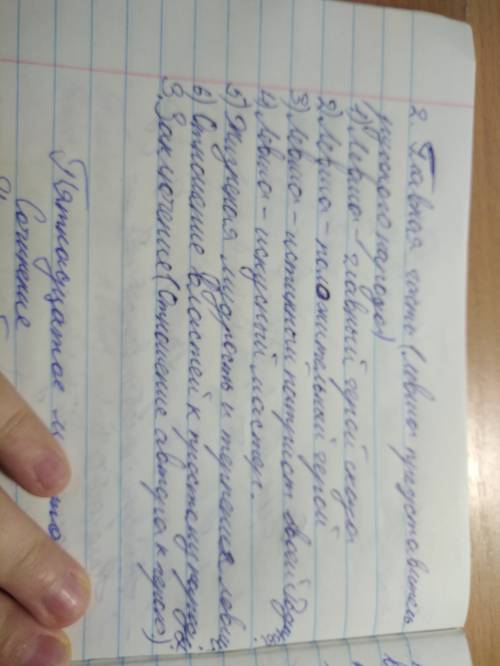 2. Главная часть (левша представитель
русского народа)
1) Левша - главный герой сказа
2) Левша - положительный герой
3) Левша - истинный патриот своей Родины
4) Левша - искусный мастер.
5) Жизненная мудрость и терпения левши
6) Отношение властей к простому народу
3. Заключение (Отношение автора к герою)
Пятнадцатое
Сочинение